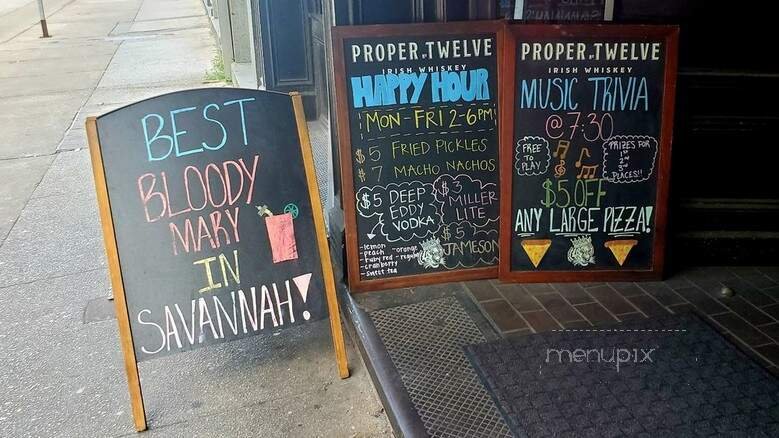 BEST
BLOODY
MARY
IN
SAVANNAH!
PROPER.TWELVE
IRISH WHISKEY
HAPPY HOUR
MON-FRI 2-6PM
$5 FRIED PICKLES
$7 MACHO NACHOS
$5 DEEP
EDDY
VODKA
-lemon -orange
-peach -regular
-ruby red
-cranberry
-sweet tea
$3
MILLER
LITE
$5
JAMESON
PROPER.TWELVE
IRISH WHISKEY
MUSIC TRIVIA
@7:30
FREE
TO
PLAY
PRIZES FOR
1st
2nd
3rd
PLACES!!
$5 OFF
ANY LARGE PIZZA!
menupix